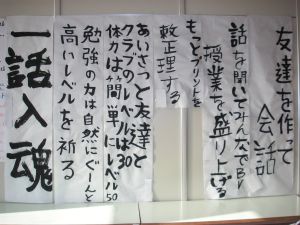 友達を作って
会話
話を聞いてみんなでBV
授業を盛り上げる
もっとプリントを
整正理する
あいさっと友達と
クラブのレベルは30
体力は簡単にレベル50
勉強の力は自然にぐーんと
高いレベルを祈る
一話入魂